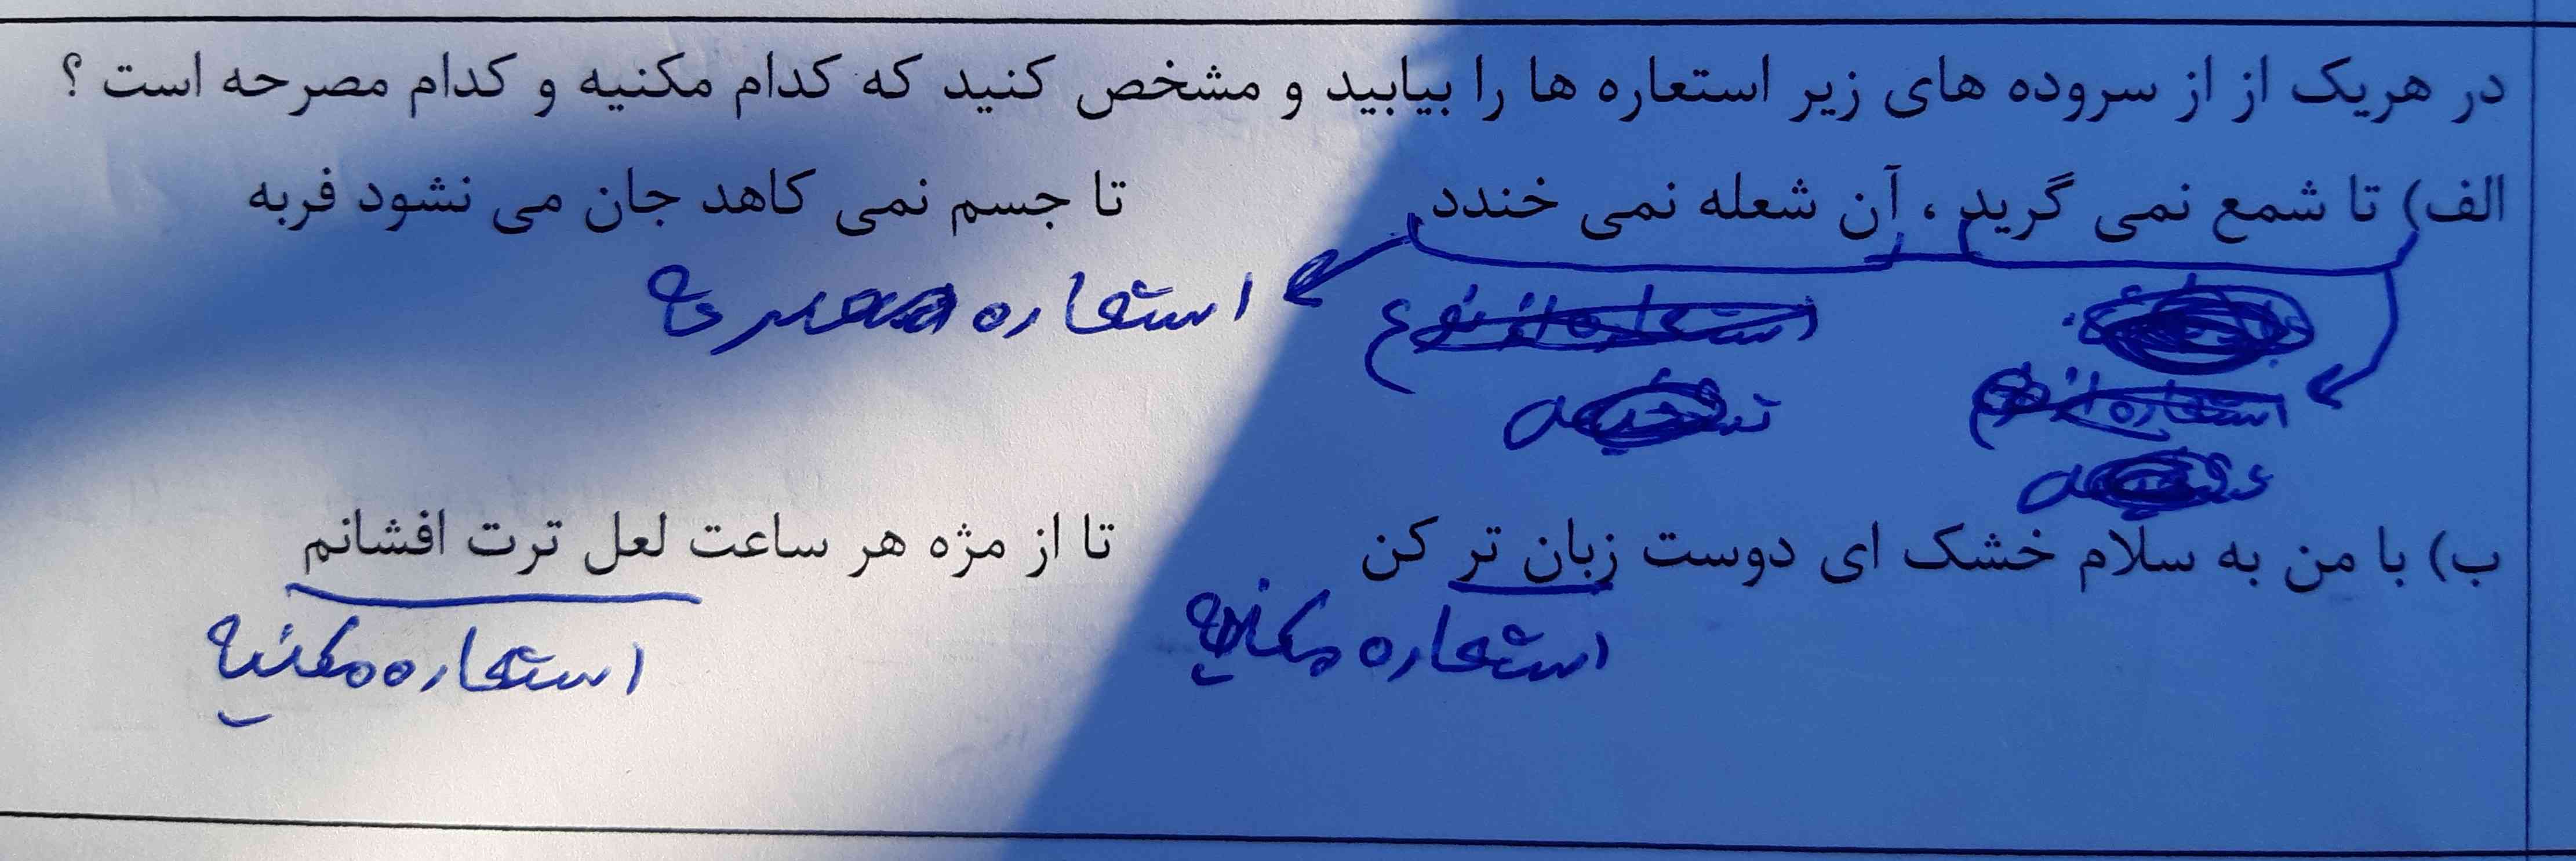 در هریک از از سروده های زیر استعاره ها را بیابید و مشخص کنید که کدام مکنیه و کدام مصرحه است ؟
الف) تا شمع نمی گرید ، آن شعله نمی خندد تا جسم نمی کاهد جان می نشود فربه
استعاره مصرحه
استعاره از نوع
استعاره از نوع
ب) با من به سلام خشک ای دوست زبان تر کن تا از مژه هر ساعت لعل ترت افشانم
استعاره مکنیه استعاره مکنیه